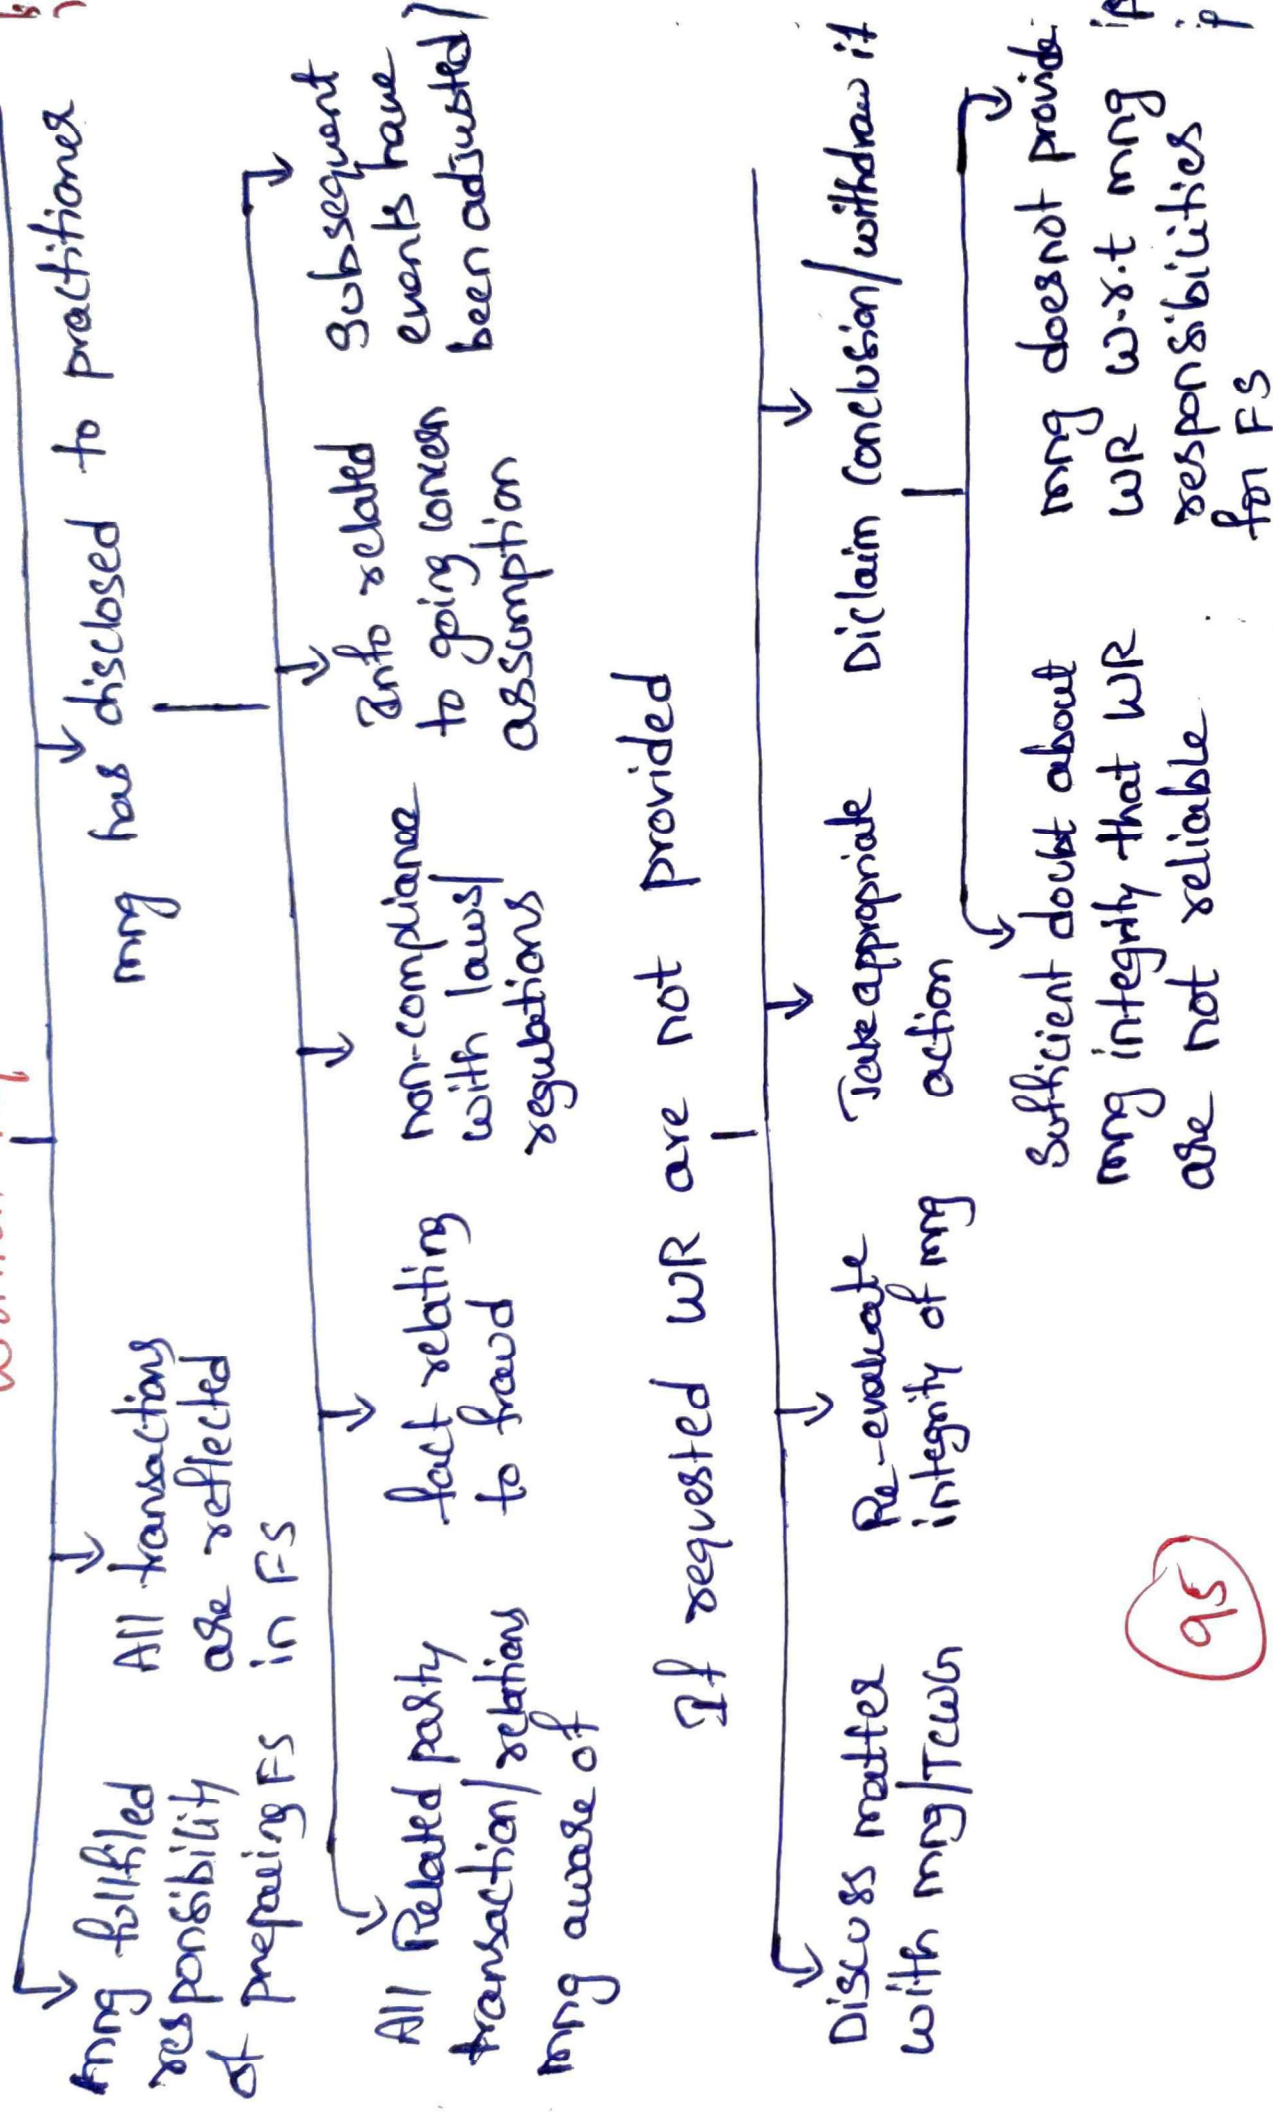 mng fullfiled
responsibility
of preparing FS
All transactions
are reflected
in FS
mng has disclosed to practitioner
All Related party
transaction/relations
mng aware of
fact relating
to fraud
non-compliance
with laws/
regulations
Info related
to going concern
assumption
Subsequent
events have
been adjusted/
If requested WR are not provided
Discuss matter
with mng/TCWG
Re-evaluate
integrity of mng
Take appropriate
action
Diclaim Conclusion/withdraw if
Sufficient doubt about
mng integrity that WR
are not reliable
mng doesnot provide
WR w.r.t mng
responsibilities
for FS
95